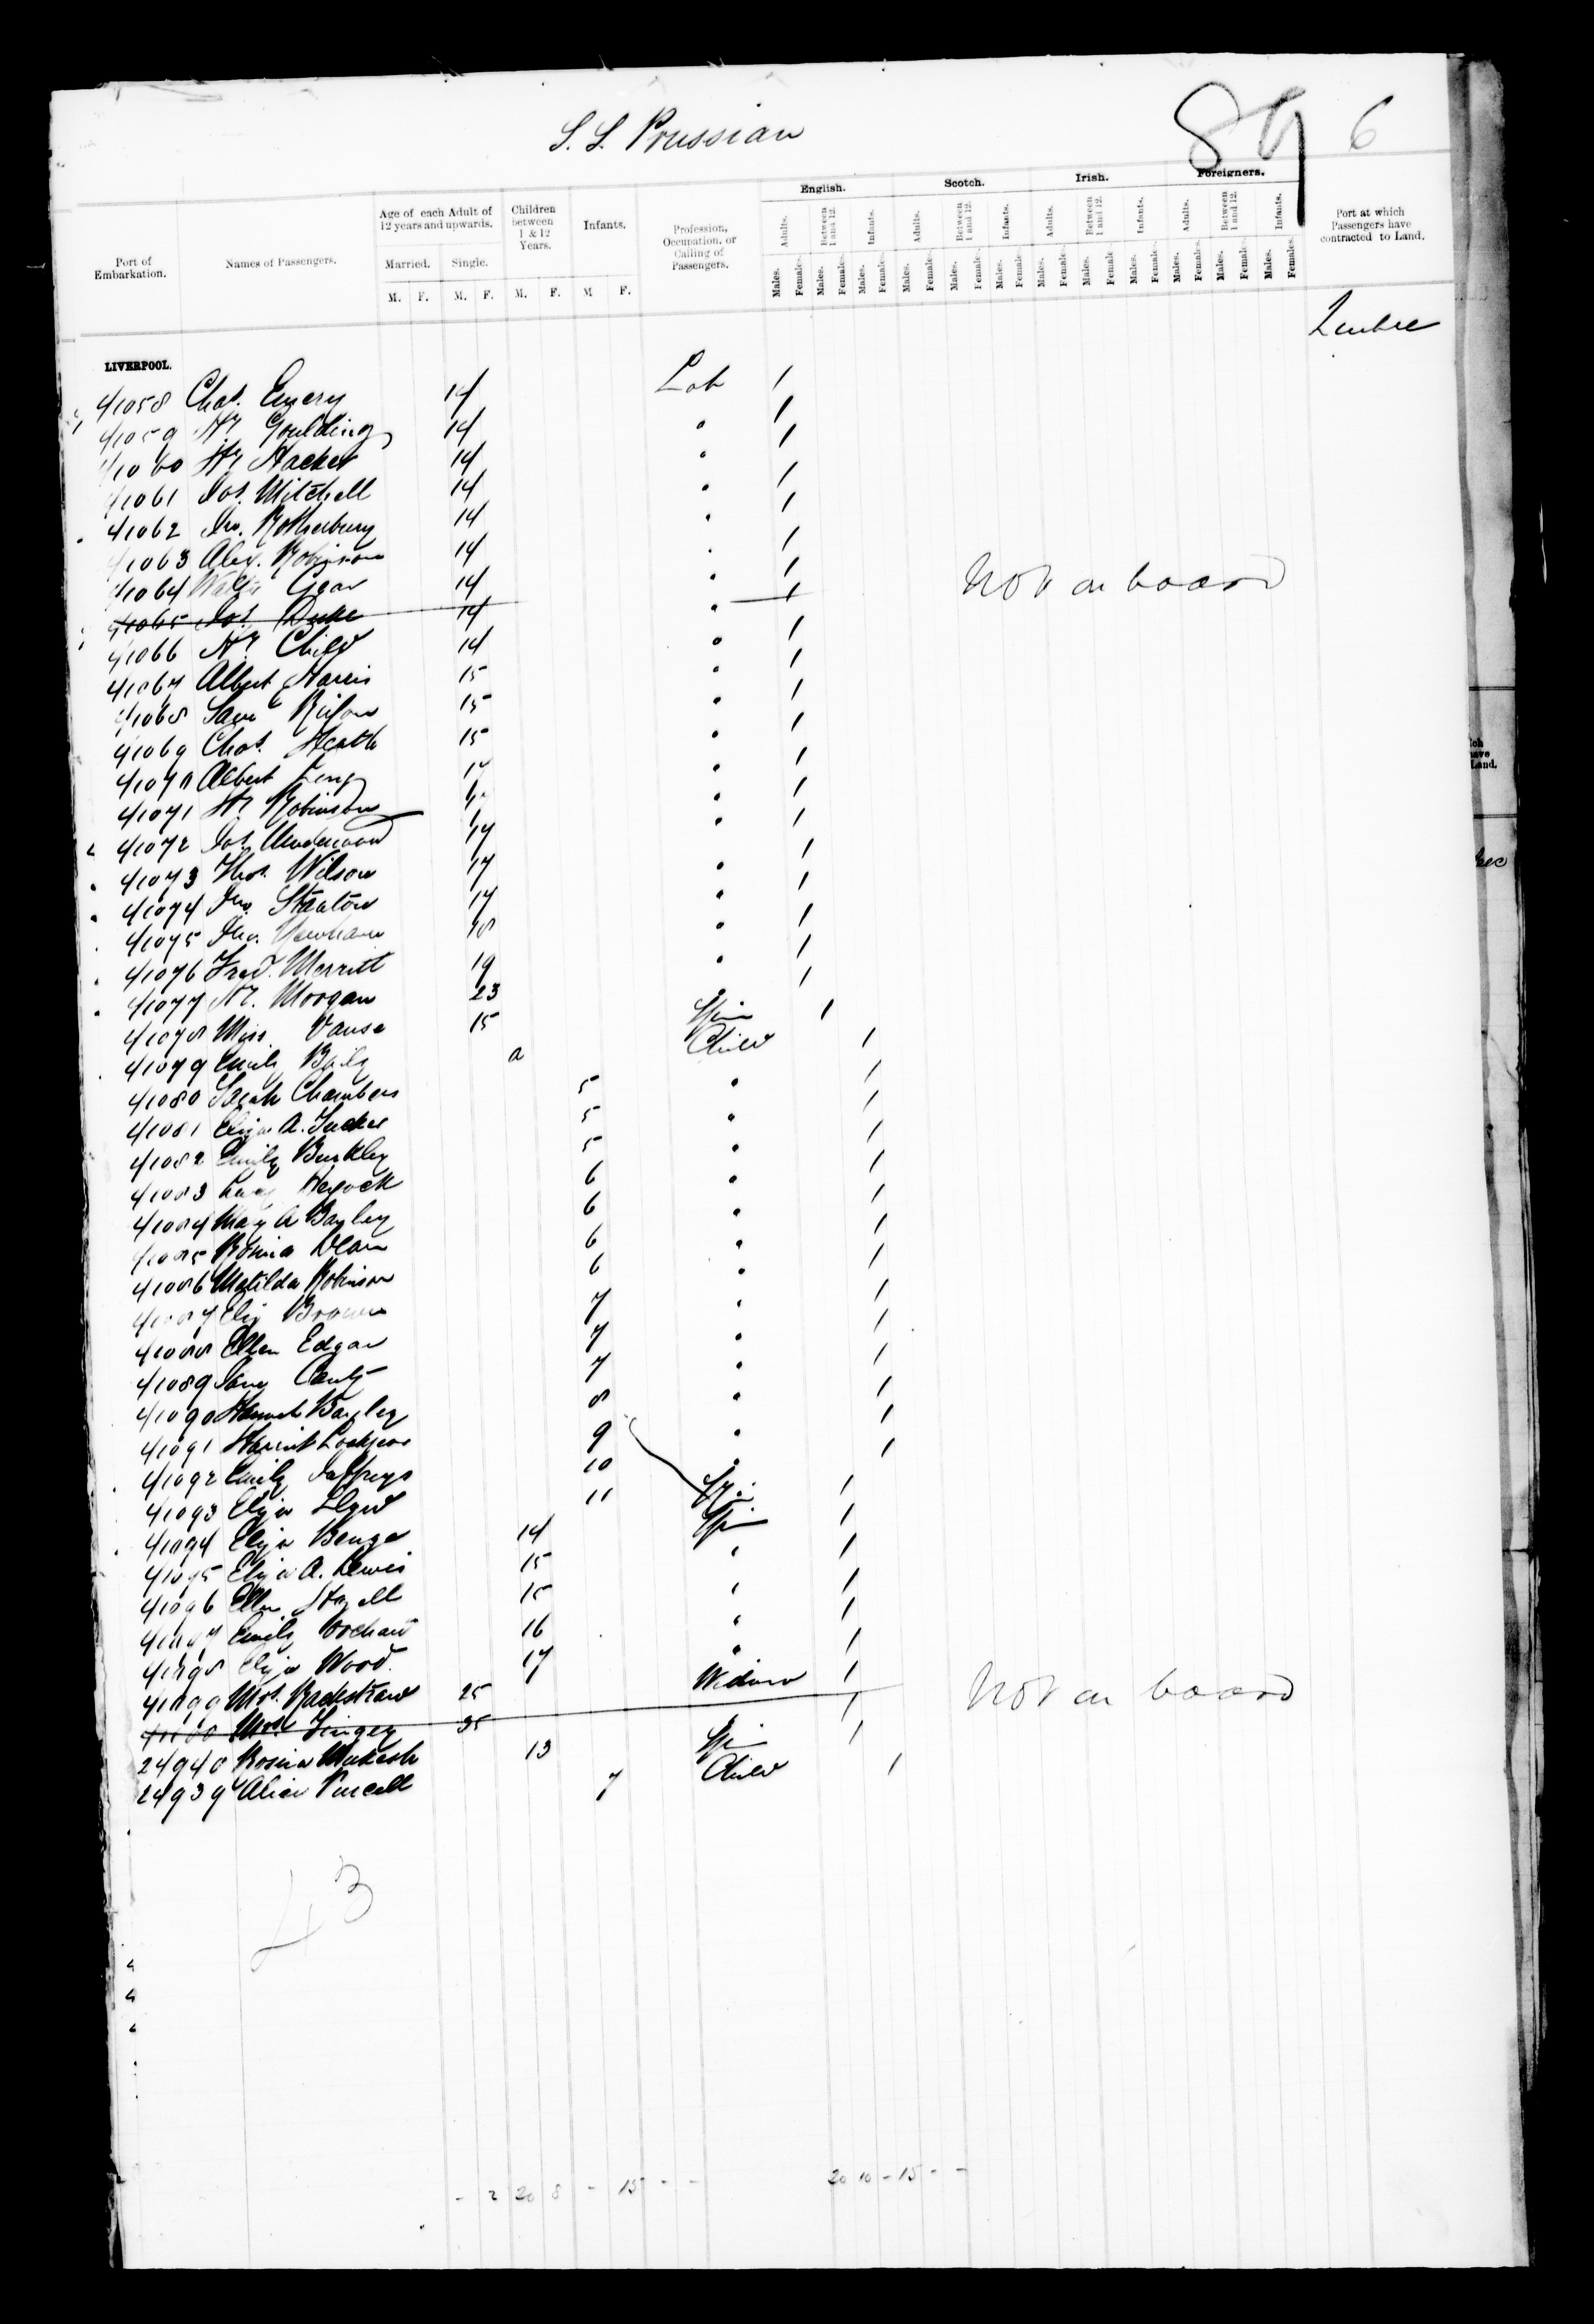 S. S. Prussian
89 6
English. Scotch. Irish. Foreigners.
Port of Embarkation. Names of Passengers. Age of each Adult of 12 years and upwards. Children between 1 & 12 Years. Infants. Profession, Occupation, or Calling of Passengers. Port at which Passengers have contracted to Land.
Adults. Between 1 and 12. Infants. Adults. Between 1 and 12. Infants. Adults. Between 1 and 12. Infants. Adults. Between 1 and 12. Infants.
Married. Single.
M. F. M. F. M. F. M F.
Males. Females. Males. Females. Males. Female. Males. Female. Males. Female. Males. Female. Males. Female. Males. Female. Males. Female. Males. Females. Males. Female. Males. Females.
Quebec
LIVERPOOL.
41058 Chas. Emery 14 Lab 1
41059 Hy Goulding 14 " 1
41060 Hy Hacker 14 " 1
41061 Jos. Mitchell 14 " 1
41062 Jno. Rotherbury 14 " 1
41063 Alex. Robinson 14 " 1
41064 Walter Gear 14 " 1
41065 Jos. Duke 14 " 1 Not on board
41066 Hy Child 14 " 1
41067 Albert Harris 15 " 1
41068 Saml 15 " 1
41069 Chas. Heath 15 " 1
41070 Albert King " 1
41071 Hy Robinson " 1
41072 Jos. Underwood 17 " 1
41073 Thos. Wilson 17 " 1
41074 Jno. Stanton 17 " 1
41075 Jno. 18 " 1
41076 Fred. Merritt 19 " 1
41077 Hy. Morgan 23 " 1
41078 Miss. Vause 15 Spin 1
41079 Emily Child 1
41080 Sarah Chambers 5 " 1
41081 Eliza A. Tucker 5 " 1
41082 Emily Burkley 5 " 1
41083 Lucy 6 " 1
41084 Mary A Bayley 6 " 1
41085 Rosina Dean 6 " 1
41086 Matilda Robinson 6 " 1
41087 Eliz Brown 7 " 1
41088 Ellen Edgar 7 " 1
41089 Jane 7 " 1
41090 Hannah Bayley 8 " 1
41091 Harriet 9 " 1
41092 Emily Jeffreys 10 " 1
41093 Eliza Lloyd 11 Spin 1
41094 Eliza Benge 14 Spin 1
41095 Eliza A. Lewis 15 " 1
41096 Ellen 15 " 1
41097 Emily Orchard 16 " 1
41098 Eliza Wood. 17 " 1
41099 Mrs. Rackstraw 25 Widow 1
41100 Mrs Tingey 35 1 Not on board
24940 Rosina 13 Spin 1
24939 Alice Purcell 7 Child 1
43
- 2 20 8 - 15 - - 20 10 - 15 - -